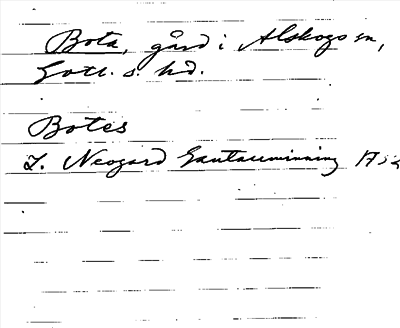 Bota, gård i Alskogs sn,
Gotl. s. hd.
Botes
J. Neogard Gautauminning 1732